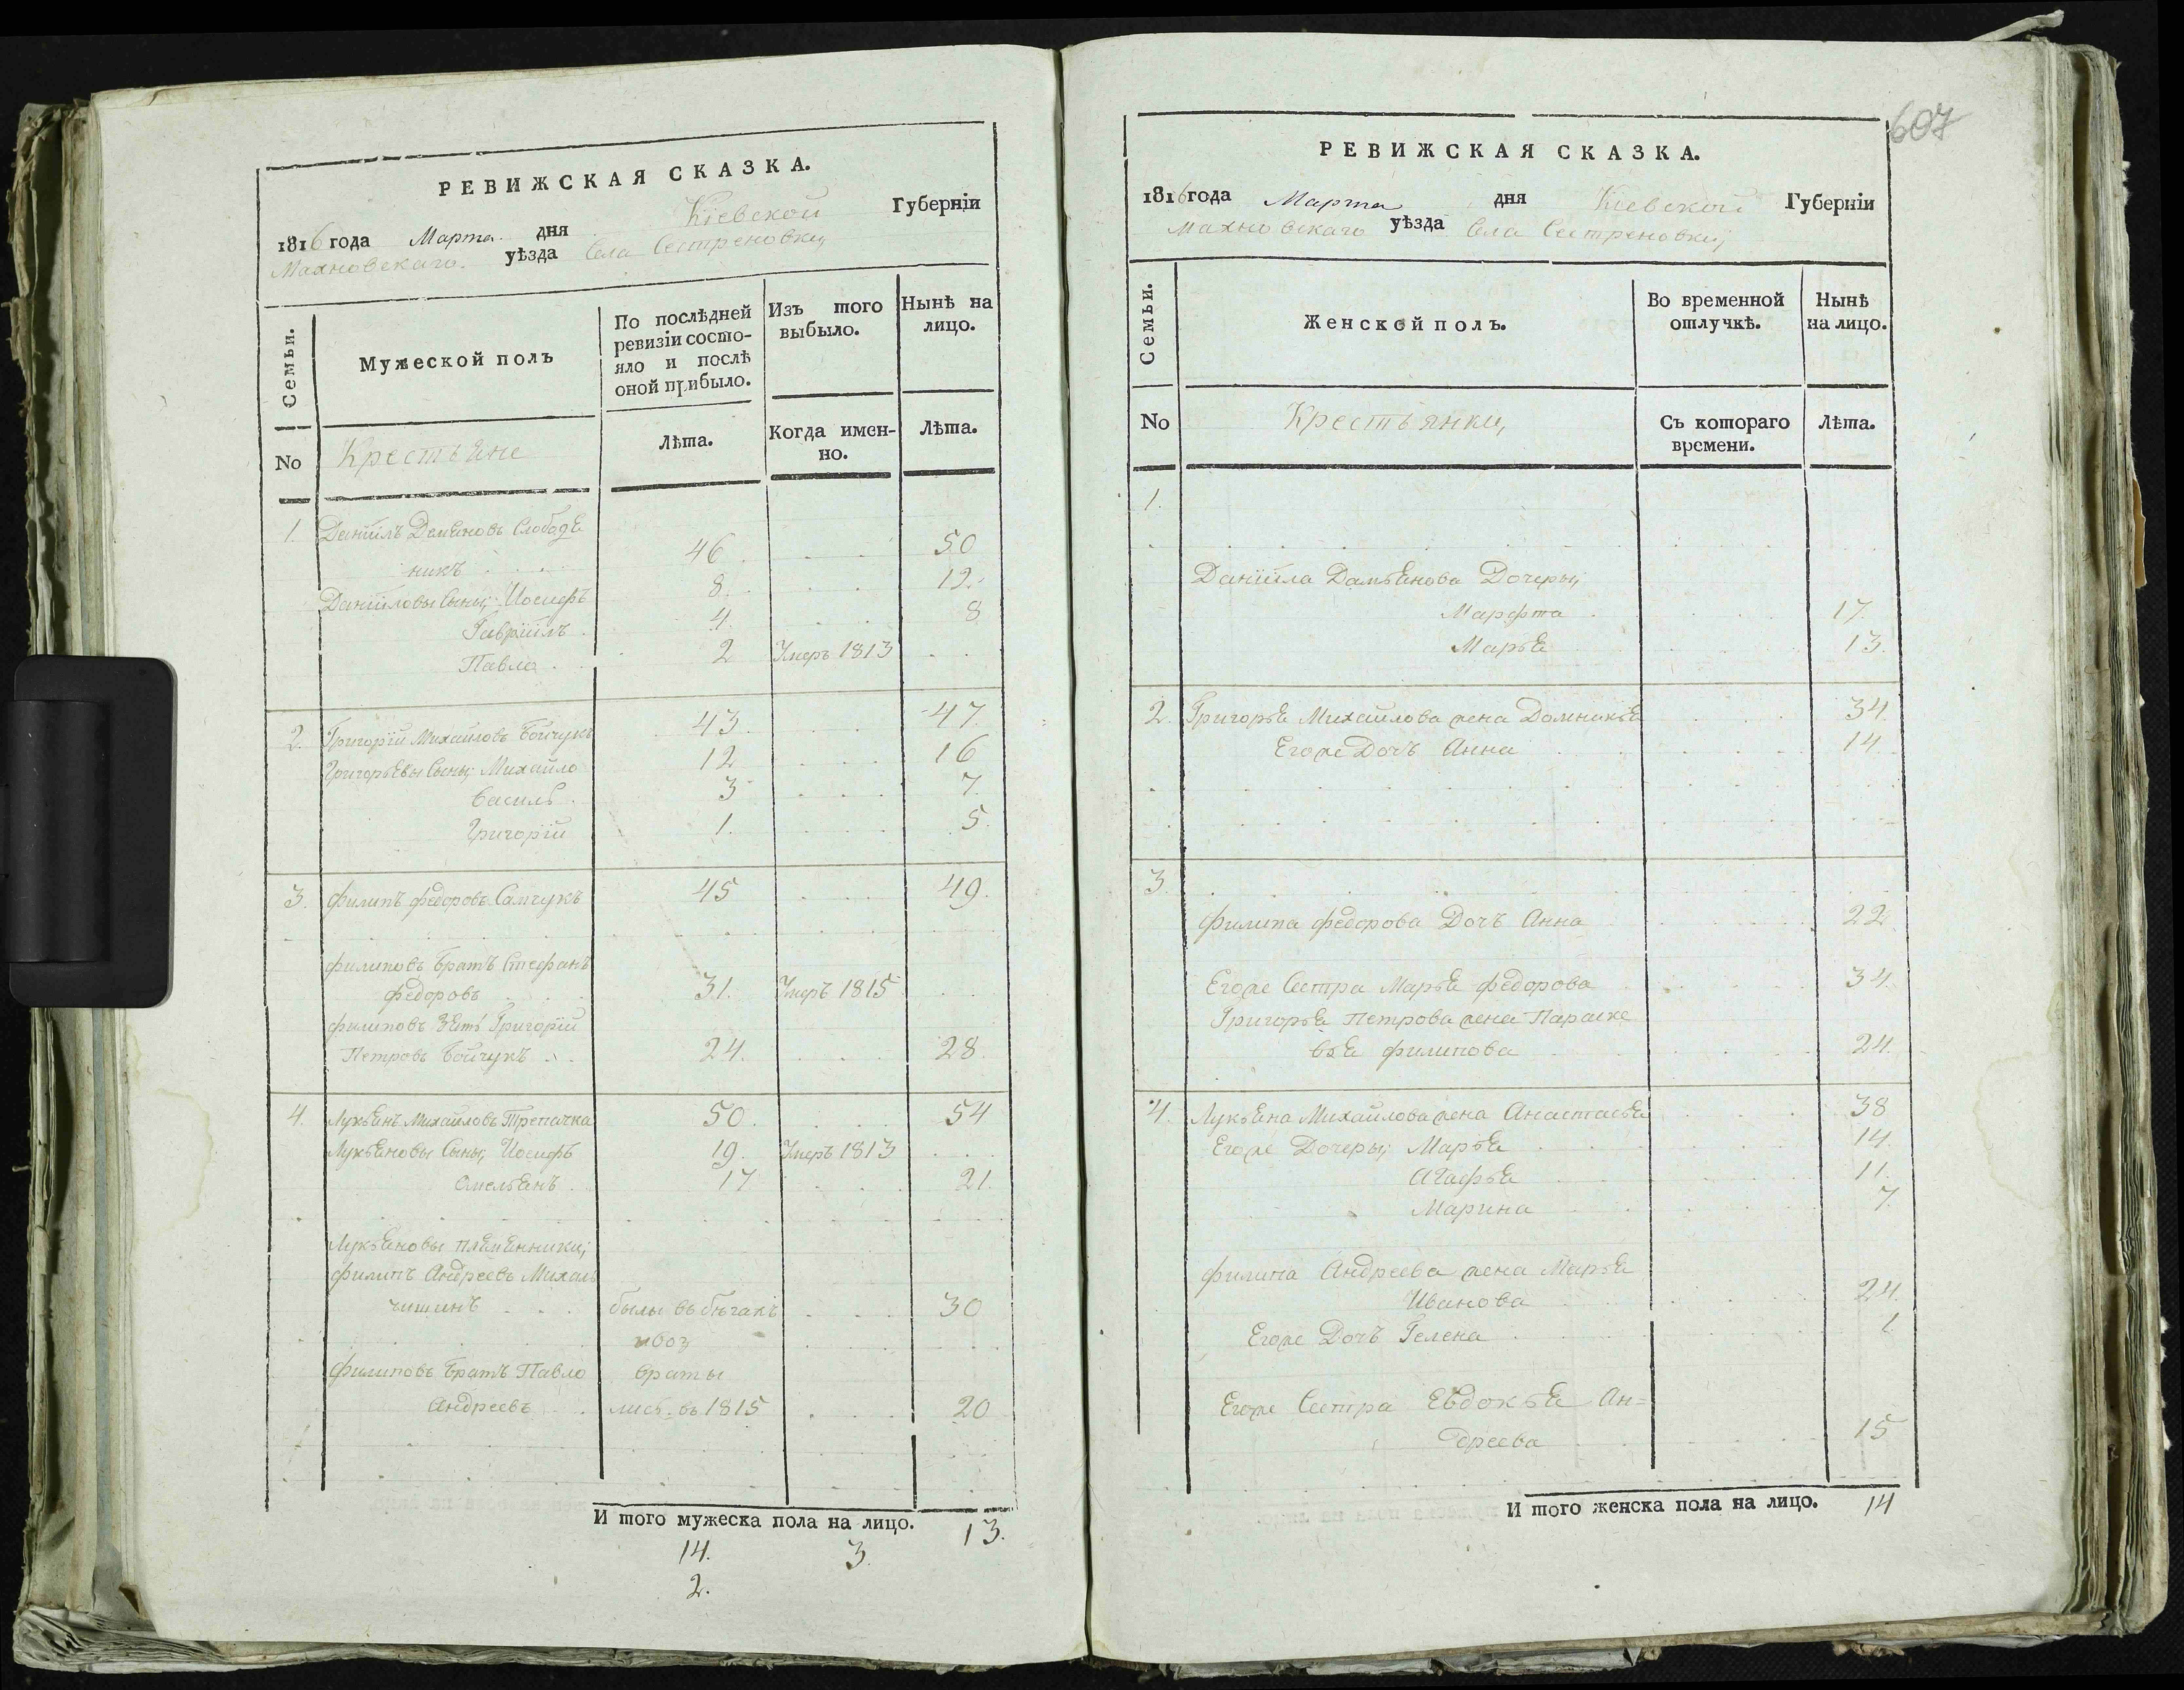 РЕВИЖСКАЯ СКАЗКА.
1816 года Марта дня Кіевской Губерніи
Махновскаго уѣзда Села Сестреновки
Семьи.
Мужеской полъ
По послѣдней ревизіи состо-
яло и послѣ
оной прибыло.
Изъ того
выбыло.
Нынѣ на
лицо.
No
Крестьяне
Лѣта.
Когда имен-
но.
Лѣта.
1. Даніилъ Демяновъ Слободя
никъ 46 50
Даніиловы Сыны, Иосифъ 8. 12.
Гавріилъ 4. 8
Павло 2 Умеръ 1813
2. Григорій Михайловъ Бойчукъ 43 47.
Григорьевы Сыны, Михайло 12 16
Василь 3 7.
Григорій 1. 5.
3. Филипъ Федоровъ Самчукъ 45 49.
Филиповъ Братъ Стефанъ
Федоровъ 31. Умеръ 1815
Филиповъ Зять Григорій
Петровъ Бойчукъ 24. 28.
4. Лукъянъ Михайловъ Трепачка 50. 54
Лукъяновы Сыны, Иосифъ 19. Умеръ 1813
Омельянъ 17 21.
Лукъяновы племянники,
Филипъ Андреевъ Михаль
чишинъ былы въ бѣгахъ 30
и воз
Филиповъ Братъ Павло враты
Андреевъ лись въ 1815 20
И того мужеска пола на лицо. 13.
14. 3.
2.
607
РЕВИЖСКАЯ СКАЗКА.
1816 года Марта дня Кіевской Губерніи
Махновскаго уѣзда Села Сестреновки,
Семьи.
Женской полъ.
Во временной
отлучкѣ.
Нынѣ
на лицо.
No
Крестьянки,
Съ котораго
времени.
Лѣта.
1.
Даніила Дамьянова Дочеры,
Марфта 17.
Марья 13.
2. Григорья Михайлова жена Домникія 34.
Его же Дочъ Анна 14.
3.
Филипа Федорова Дочъ Анна 22.
Его же Сестра Марья Федорова 34.
Григорья Петрова жена Параске
вья Филипова 24.
4. Лукъяна Михайлова жена Анастасья 38
Его же Дочеры, Марья 14.
Агафья 11.
Марина 7.
Филипа Андреева жена Марья
Иванова 24.
Его же Дочъ Гелена 1
Его же Сестра Евдокья Ан=
дреева 15
И того женска пола на лицо. 14